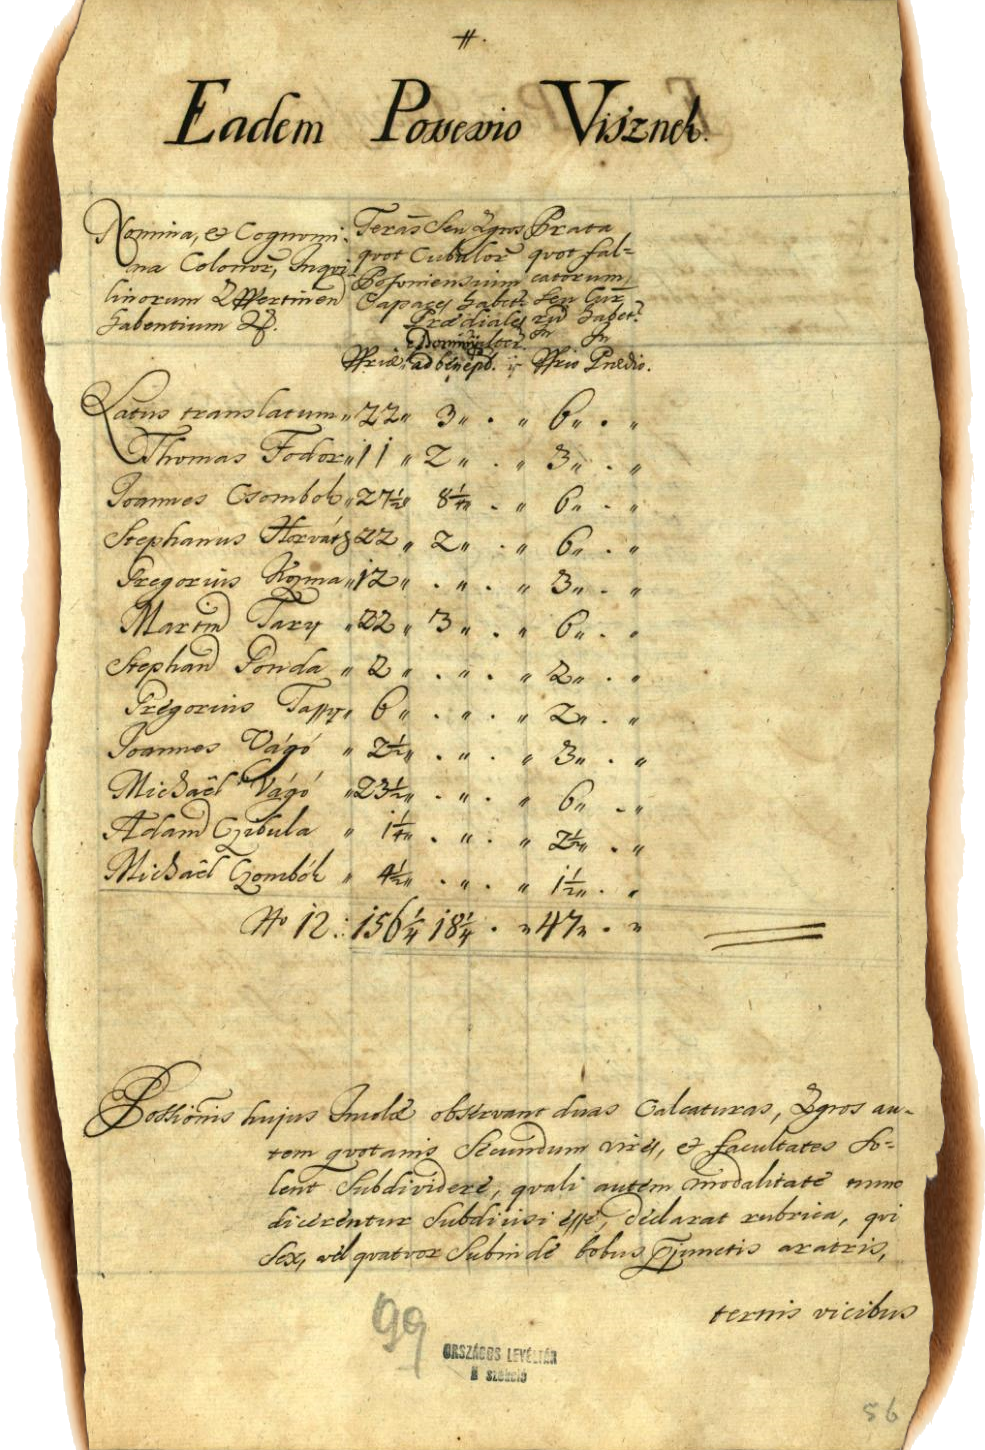 #.
Eadem Possessio Visznek.
Nomina, et Cognomi-
na Colonor, Inqvi-
linorum
habentium
Teras seu Agros
qvot Cubulor
Posoniensium
Capaces habet
Prædiales
ad
Prata
qvot fal-
catorum
seu Cur
habet
In In
Prædio.
Latus translatum " 22 " 3 " . " 6 " . "
Thomas Fodor " 11 " 2 " . " 3 " . "
Joannes Csombok " 27½ " 8¼ " . " 6 " . "
Stephanus Horváth 22 " 2 " . " 6 " . "
Gregorius Kozma " 12 " . " . " 3 " . "
Martin Tary " 22 " 3 " . " 6 " . "
Stephan Gonda " 2 " . " . " 2 " . "
Gregorius Tassy " 6 " . " . " 2 " . "
Joannes Vágó " 2½ " . " . " 3 " . "
Michaël Vágó " 23½ " . " . " 6 " . "
Adam Czibula " 1¼ " . " . " 2½ " . "
Michaël Czombók " 4½ " . " . " 1½ " . "
No 12 .: 156¼ 18¼ . " 47 " . "
Possionis hujus Incolæ observant duas Calcaturas, Agros au-
tem qvotanis secundum vires, et facultates so-
lent subdividere, qvali autem modalitate nunc
dicerentur subdivisi esse, declarat rubrica, qvi
sex, vel qvatvor subinde bobus junctis aratris,
ternis vicibus
99
ORSZÁGOS LEVÉLTÁR
szekció
56